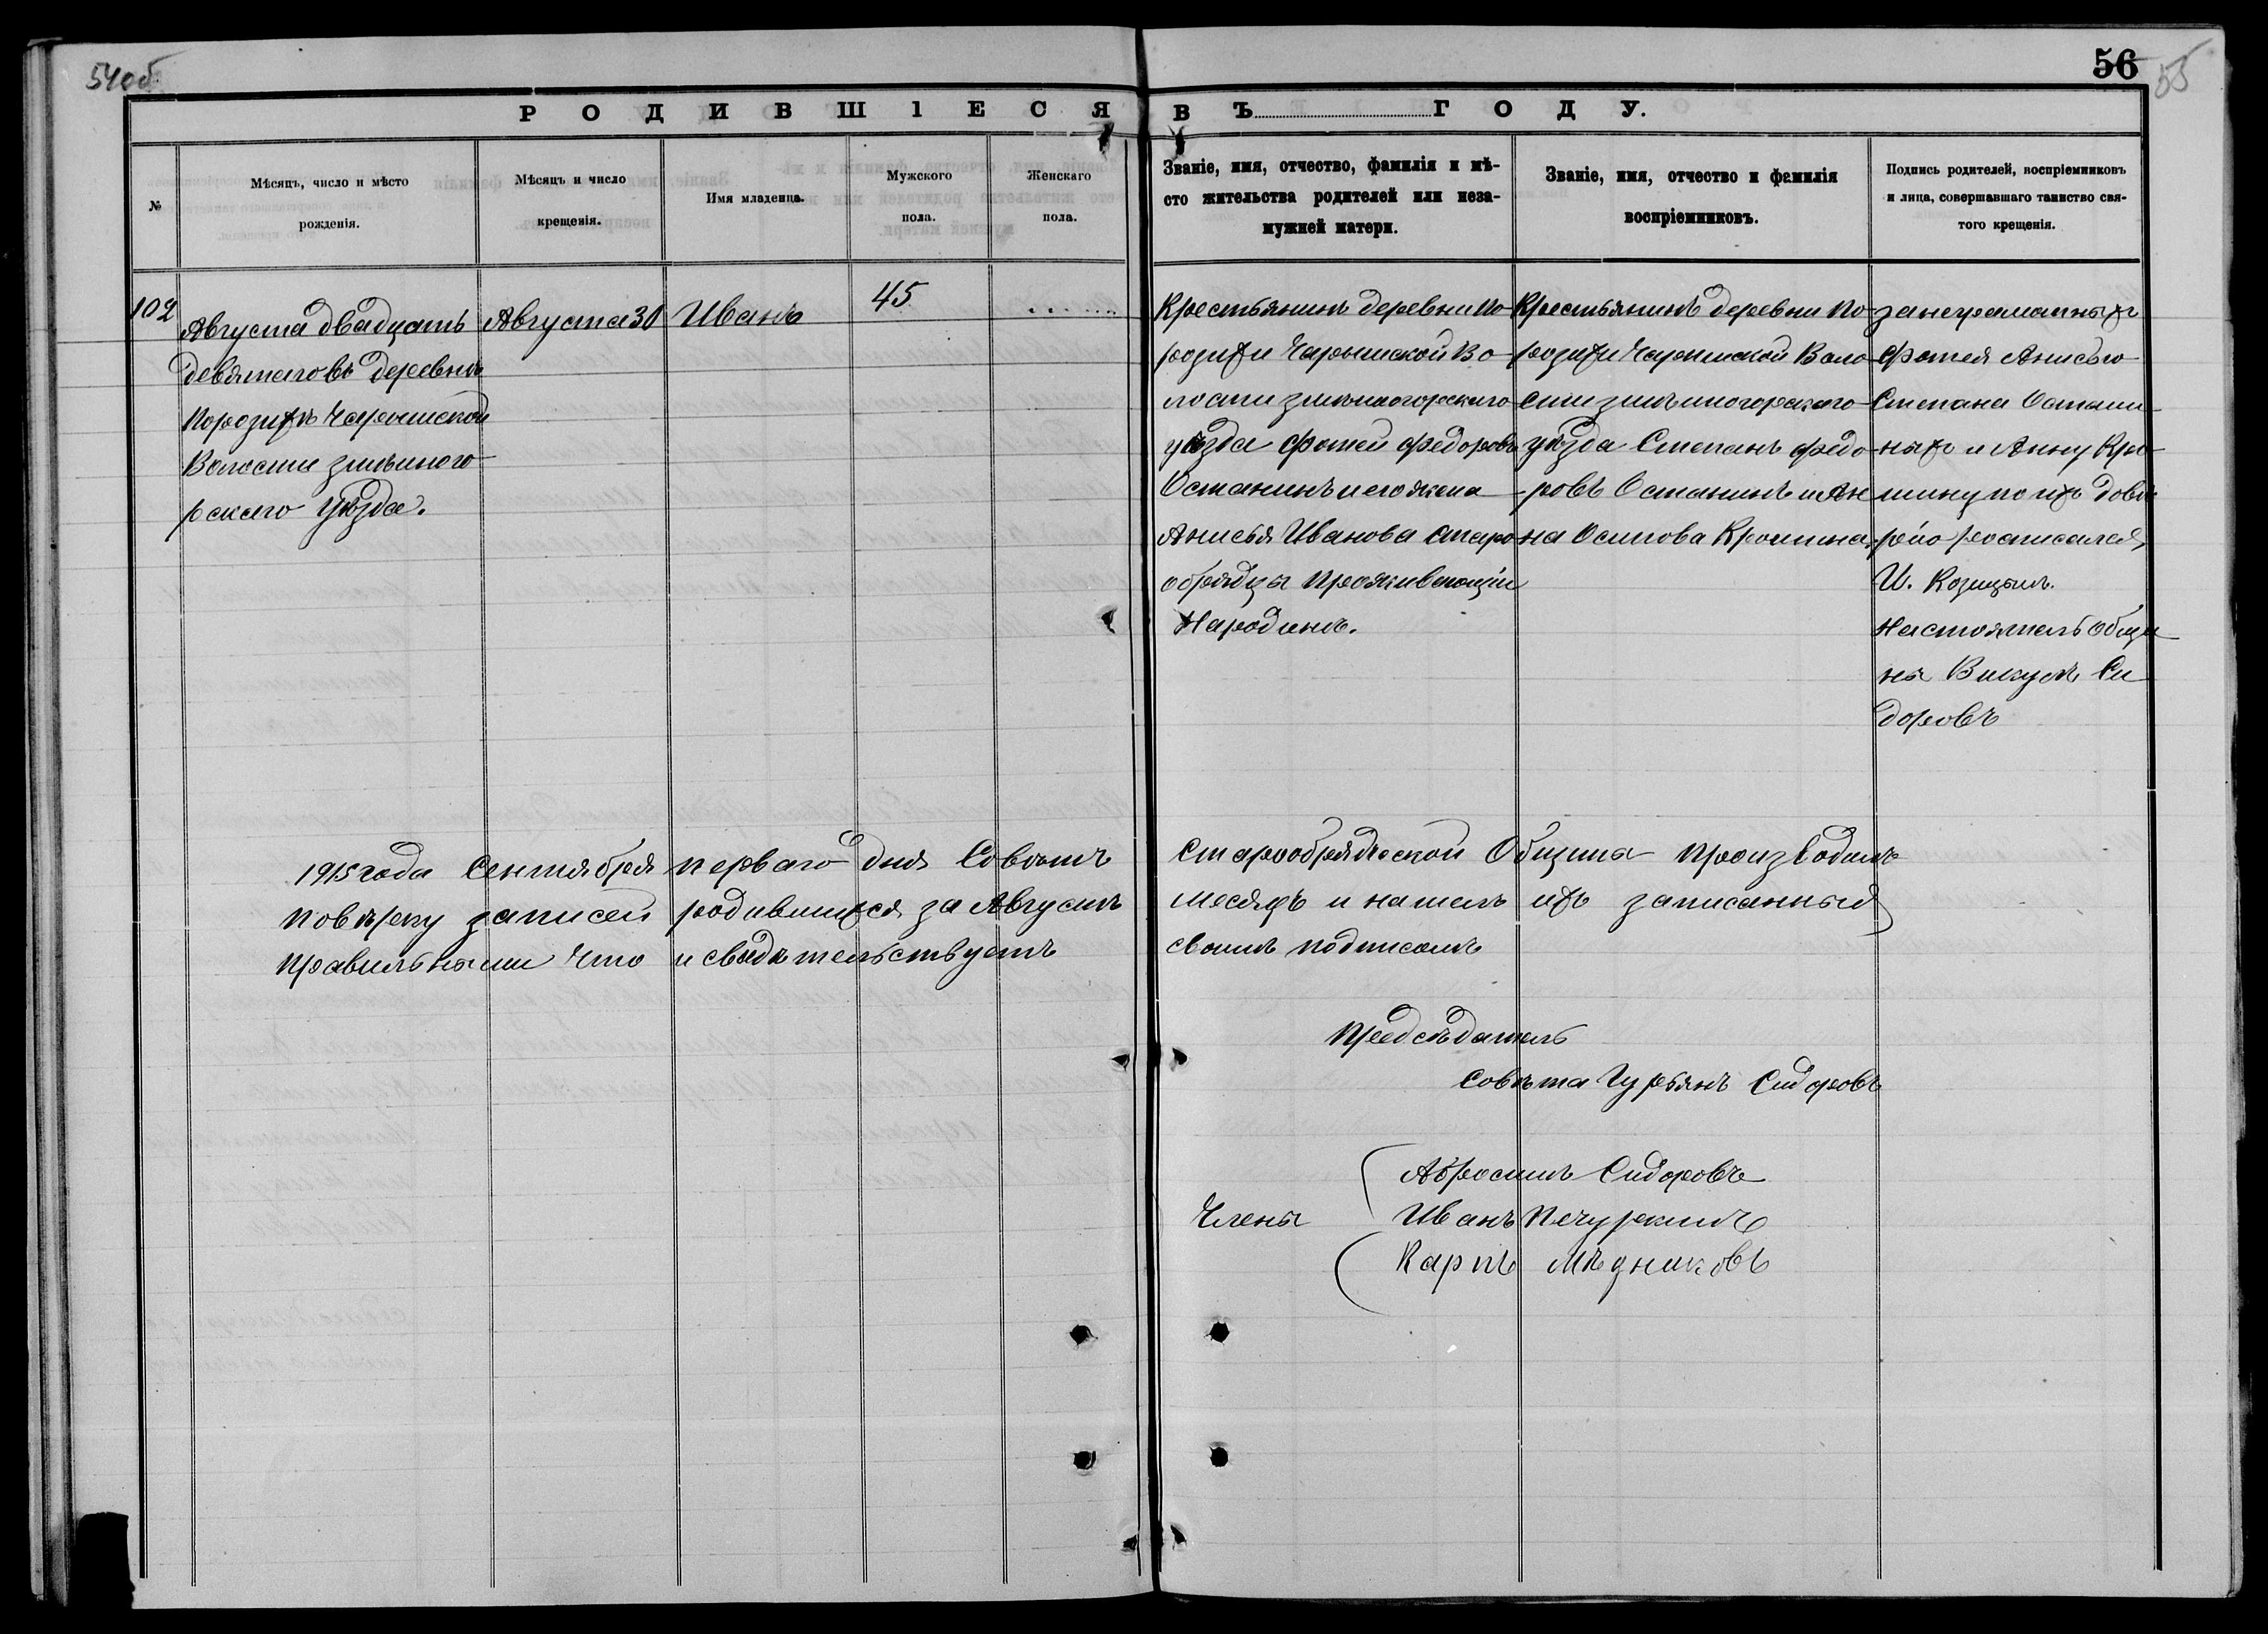 54об
56
55
РОДИВШІЕСЯ ВЪ ГОДУ.
№
Мѣсяцъ, число и мѣсто
рожденія.
Мѣсяцъ и число
крещенія.
Имя младенца.
Мужского
пола.
Женскаго
пола.
Званіе, имя, отчество, фамилія и мѣ-
сто жительства родителей или неза-
мужней матери.
Званіе, имя, отчество и фамилія
воспріемниковъ.
Подпись родителей, воспріемниковъ
и лица, совершавшаго таинство свя-
того крещенія.
102
Августа двадцать
девятаго въ деревнѣ
Порозихѣ Чарышской
Волости змѣиного-
рскаго уѣзда.
Августа 30
Иванъ
45
Крестьянинъ деревни По-
розихи Чарышской Во-
лости змѣиногорскаго
уѣзда Фотей Федоровъ
Останинъ и его жена
Анисья Иванова старо-
обрядцы проживающіи
На родинѣ.
Крестьянинъ деревни По-
розихи Чарышской Воло-
сти змѣиногорскаго
уѣзда Степанъ Федо-
ровъ Останинъ и Ан
на Осипова Крошина,
за неграматныхъ
Фотея Анисью
Степана Остани-
ныхъ и Анну Кро-
шину по ихъ довѣ
рію росписался,
И. Козицынъ.
Настоятель Общи
ны Викулъ Си
доровъ
1915 года Сентября перваго дня Совѣтъ Старообрядческой Община производилъ
повѣрку записей родившихся за Августъ месяцъ и нашелъ ихъ записанныя
правильными что и свидѣтельствуетъ своимъ подписомъ
Предсѣдатель
Совѣта Гурьянъ Сидоровъ
Абросимъ Сидоровъ
Члены Иванъ Печуркинъ
Карпъ Мѣдниковъ